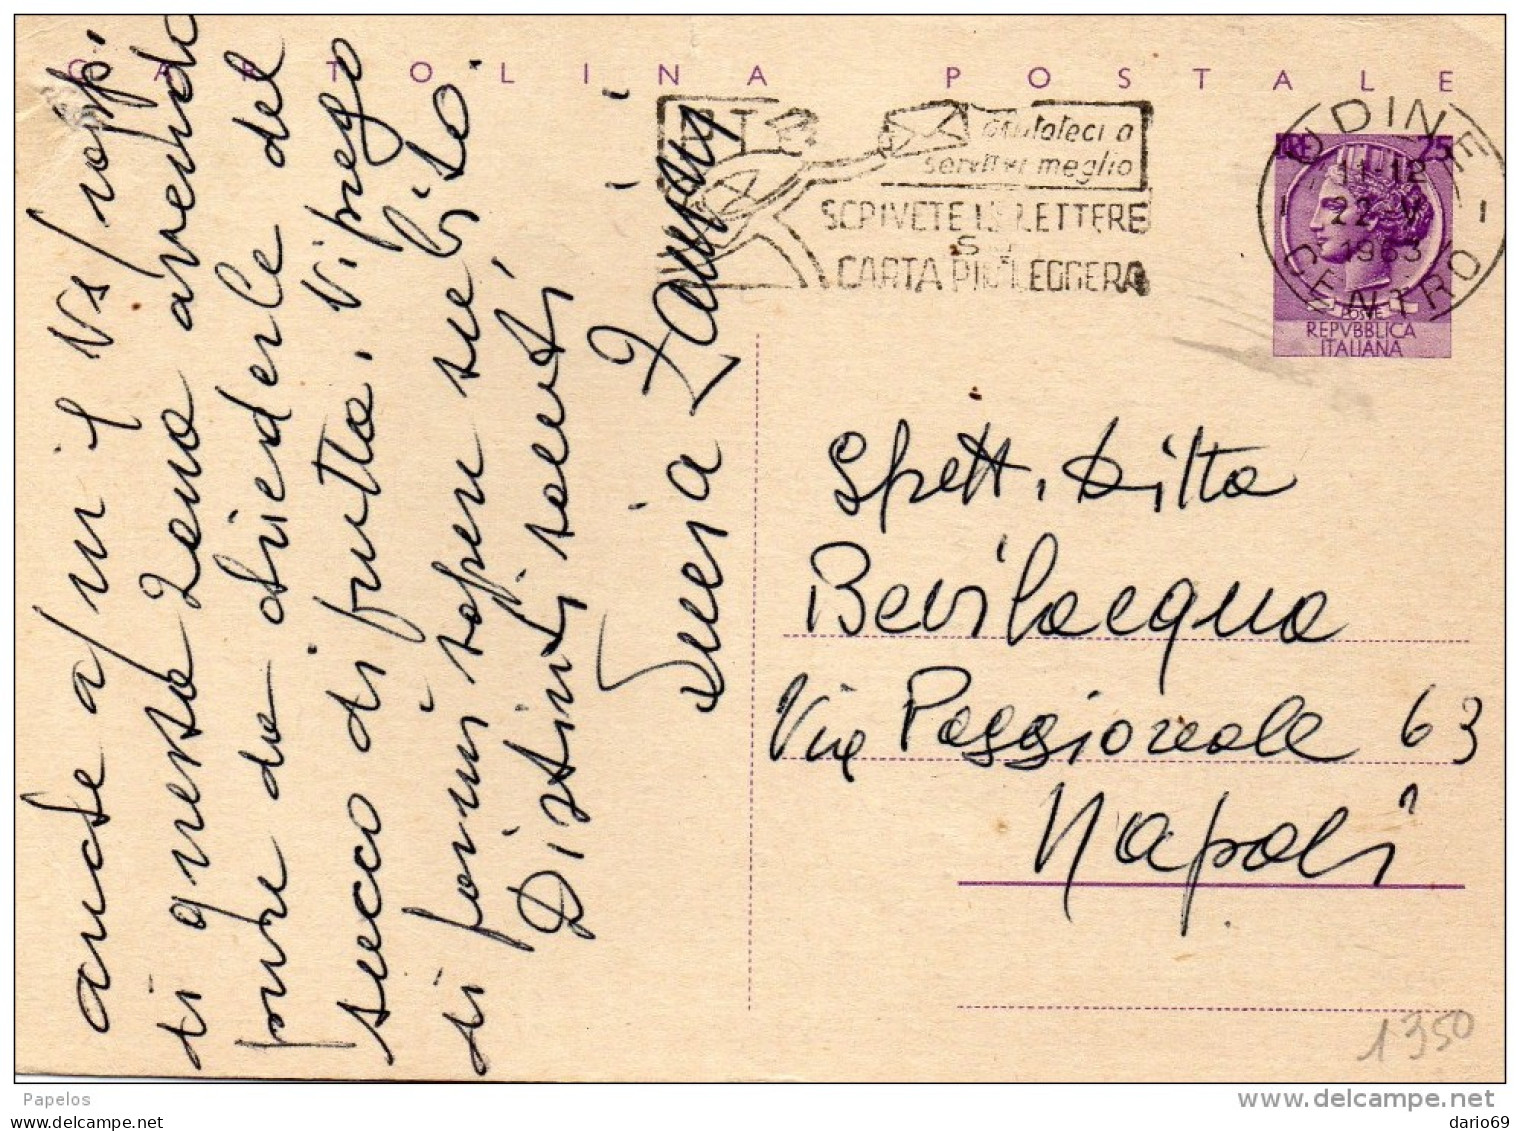 CARTOLINA POSTALE
aiutateci a
servirvi meglio
SCRIVETE LE LETTERE
SU
CARTA PIU' LEGGERA
UDINE
CENTRO
11-12
22 V
1963
LIRE 25
POSTE
REPVBBLICA
ITALIANA
anche a/m i Vs/
di questa zona avendo
pure da chiederle del
succo di frutta. Vi prego
di farmi sapere subito.
Distinti saluti
Spett. Ditta
Bevilacqua
Via Poggioreale 63
Napoli
1350
Papelos
www.delcampe.net
dario69